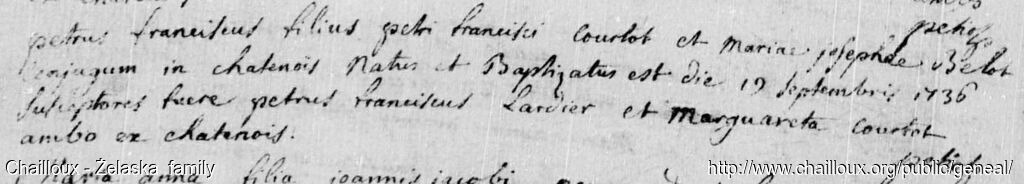 petrus franciscus filius petri francisci Courlot et Mariae josephae Belot
Conjugum in chatenois Natus et Baptizatus est die 19 septembris 1736
susceptores fuere petrus franciscus Lardier et Marguareta Courlot
ambo ex chatenois.
Maria anna filia joannis jacobi
Chailloux - Żelaska family
http://www.chailloux.org/public/geneal/